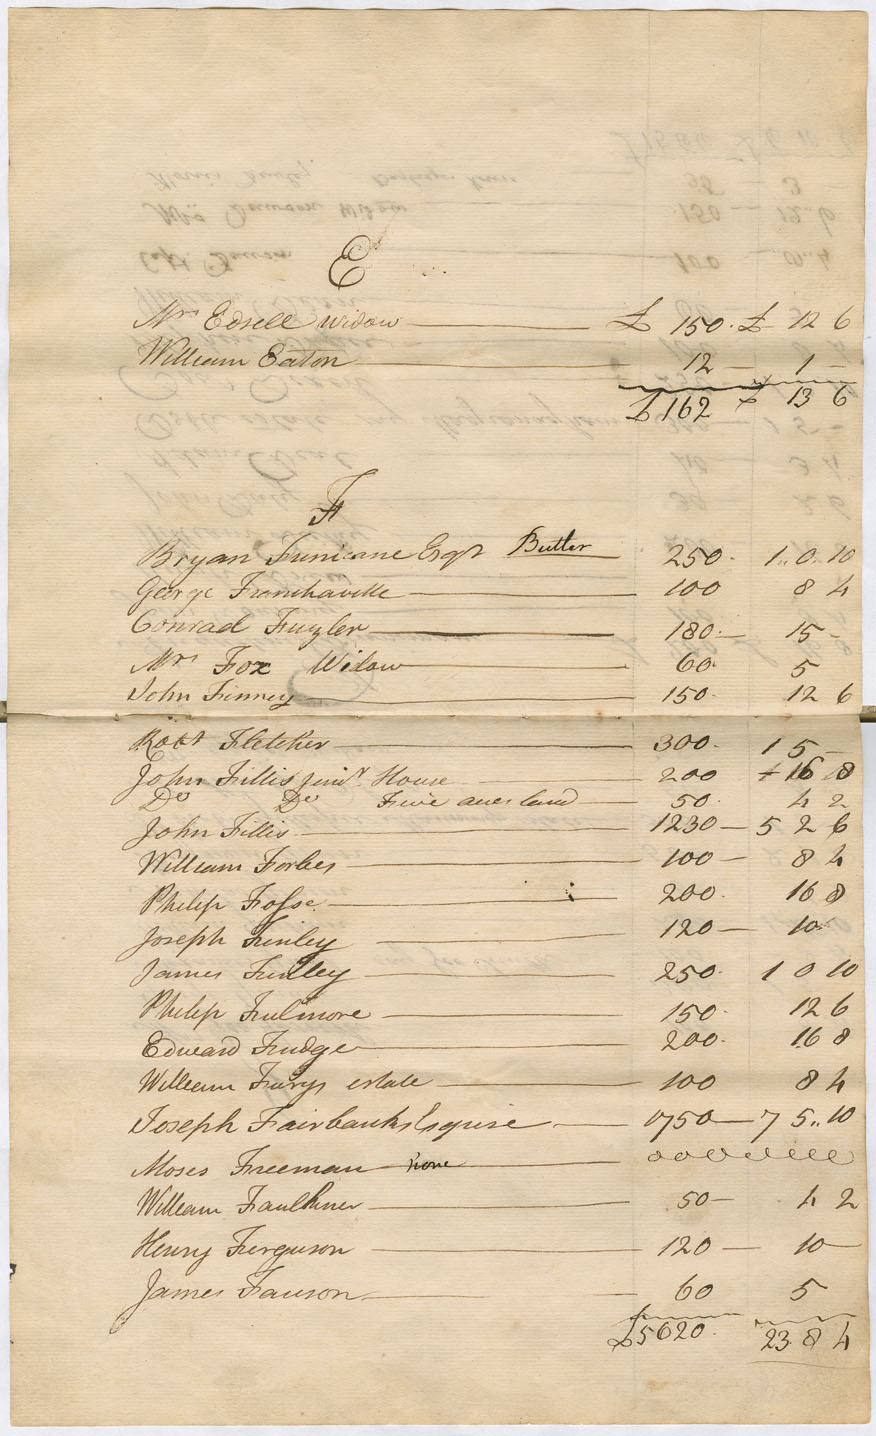 E
Mrs Edsell Widow £ 150. £ 12 6
William Eaton 12 — 1 —
£ 162 £ 13 6
F
Bryan Finnicane Esqr Butler 250. 1.. 0.. 10
George 100 8 4
Conrad Fuzler 180. — 15 —
Mrs Fox Widow 60. 5
John Finney 150. 12 6
Robt Fletcher 300. 1 5 —
John Fillis junr House 200 16 8
Do Do Five acres land 50. 4 2
John Fillis 1230 — 5 2 6
William Forbes 100 — 8 4
Philip Fosse 200. 16 8
Joseph Finley 120 — 10
James Finlley 250. 1 0 10
Philip Fulmore 150. 12 6
Edward Fudge 200. 16 8
William Furys estate 100 8 4
Joseph Fairbanks Esquire 1750 — 7 5.. 10
Moses Freeman None
William Faulkner 50 — 4 2
Henry Ferguson 120 — 10 —
James Fauson 60 5
£5620. 23 8 4